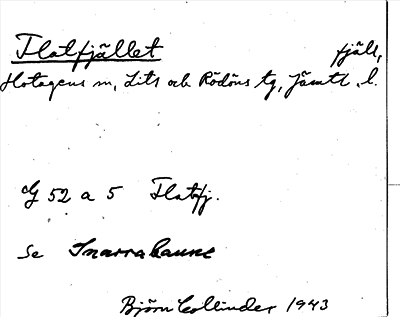 Flatfjället fjäll,
Hotagens sn, Lits och Rödöns tg, Jämtl. l.
G 52 a 5 Flatfj.
Se Snarrahaune
Björn Collinder 1943